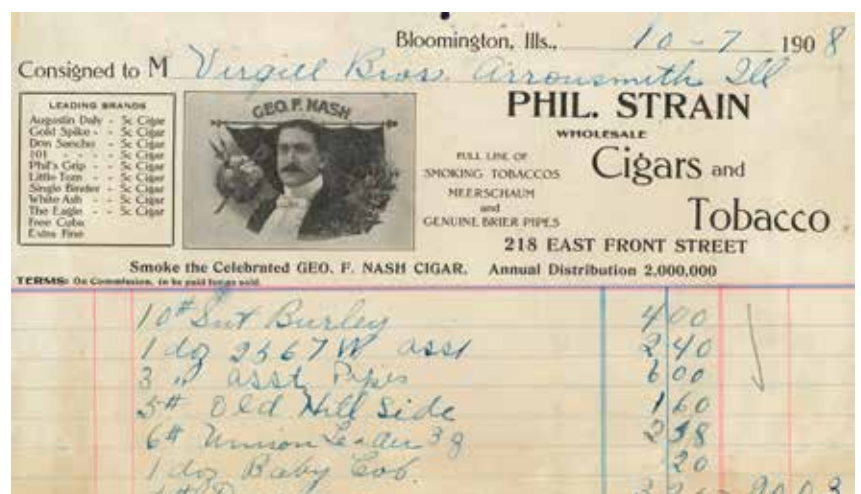 Bloomington, Ills., 10-7 1908
Consigned to M Virgill Bros. Arrowsmith Ill
LEADING BRANDS
Augustin Daly - 5c Cigar
Gold Spike - - 5c Cigar
Don Sancho - 5c Cigar
101 - - - - 5c Cigar
Phil's Grip - - 5c Cigar
Little Tom - - 5c Cigar
Single Binder - 5c Cigar
White Ash - - 5c Cigar
The Eagle - - 5c Cigar
Free Cuba
Extra Fine
GEO. F. NASH
PHIL. STRAIN
WHOLESALE
FULL LINE OF
SMOKING TOBACCOS
MEERSCHAUM
and
GENUINE BRIER PIPES
Cigars and
Tobacco
218 EAST FRONT STREET
Smoke the Celebrated GEO. F. NASH CIGAR. Annual Distribution 2,000,000
TERMS: On Commission, to be paid for as sold.
10# Burley 4 00
1 doz 2567 W asst 2 40
3 " asst Pipes 6 00
5# Old Hill Side 1 60
6# Union Leader 3 8 2 38
1 doz Baby Cob. 20